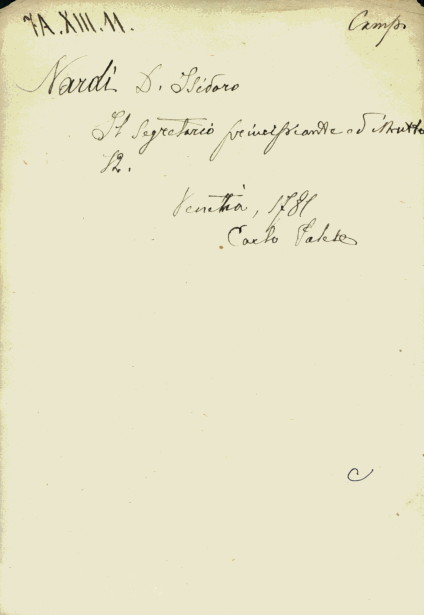 7A.XIII.11.
Camp.
Nardi D. Isidoro
Il Segretario principiante ed istrutto
12.
Venetia, 1781
Carlo
C